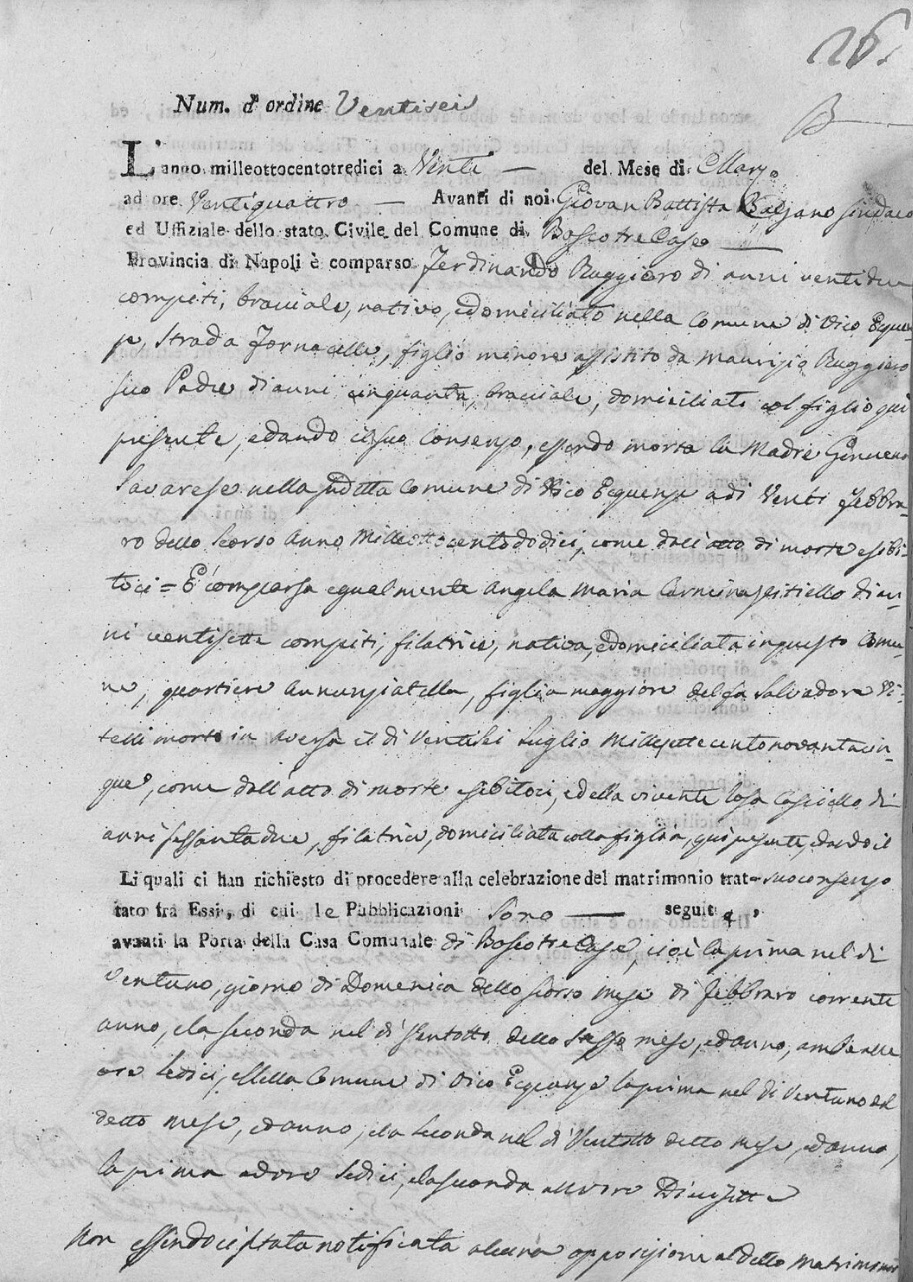 26.
Num. d'ordine Ventisei
B
L'anno milleottocentotredici a Venti del Mese di Marzo
ad ore Ventiquattro Avanti di noi Giovan Battista Balzano sindaco
ed Uffiziale dello stato Civile del Comune di Boscotrecase
Provincia di Napoli è comparso Ferdinando Ruggiero di anni ventidue
compiti, bracciale, nativo, e domiciliato nella Comune di Vico Eque-
ze, Strada Fornacelle, figlio minore assistito da Maurizio Ruggiero
suo Padre di anni cinquanta, bracciale, domiciliati col figlio qui
presente, e dando il suo consenzo, essendo morta la Madre
Savarese nella sudetta Comune di Vico Equenze adi Venti Febbra-
ro dello scorso Anno Milleottocentododici, come dall'atto di morte esibi-
toci = E' comparsa egualmente Angela Maria Carmina Vitiello di an-
ni ventisette compiti, filatrice, nativa, e domiciliata in questo Comu-
ne, quartiere Annunziatella, figlia maggiore del fu Salvadore Vi-
tielli morto in Aversa il di Ventisei Luglio Millesettecentonovantacin-
que, come dall'atto di morte esibitoci, e della vivente Rosa Casciello di
anni sessantadue, filatrice, domiciliata colla figlia, qui presente, e dando il
suo consenzo
Li quali ci han richiesto di procedere alla celebrazione del matrimonio trat-
tato fra Essi, di cui le Pubblicazioni sono seguite,
avanti la Porta della Casa Comunale di Boscotrecase, cioè la prima nel di
Ventuno, giorno di Domenica dello scorso mese di Febbraro corrente
anno, e la seconda nel di Ventotto dello stesso mese, ed anno, ambe alle
ore sedici, e nella Comune di Vico Equenze la prima nel di Ventuno del
detto mese, ed anno, e la seconda nel di Ventotto detto mese, ed anno,
la prima ad ore sedici, e la seconda all'ore Diecisette
Non essendoci stata notificata alcuna opposizione al detto matrimonio